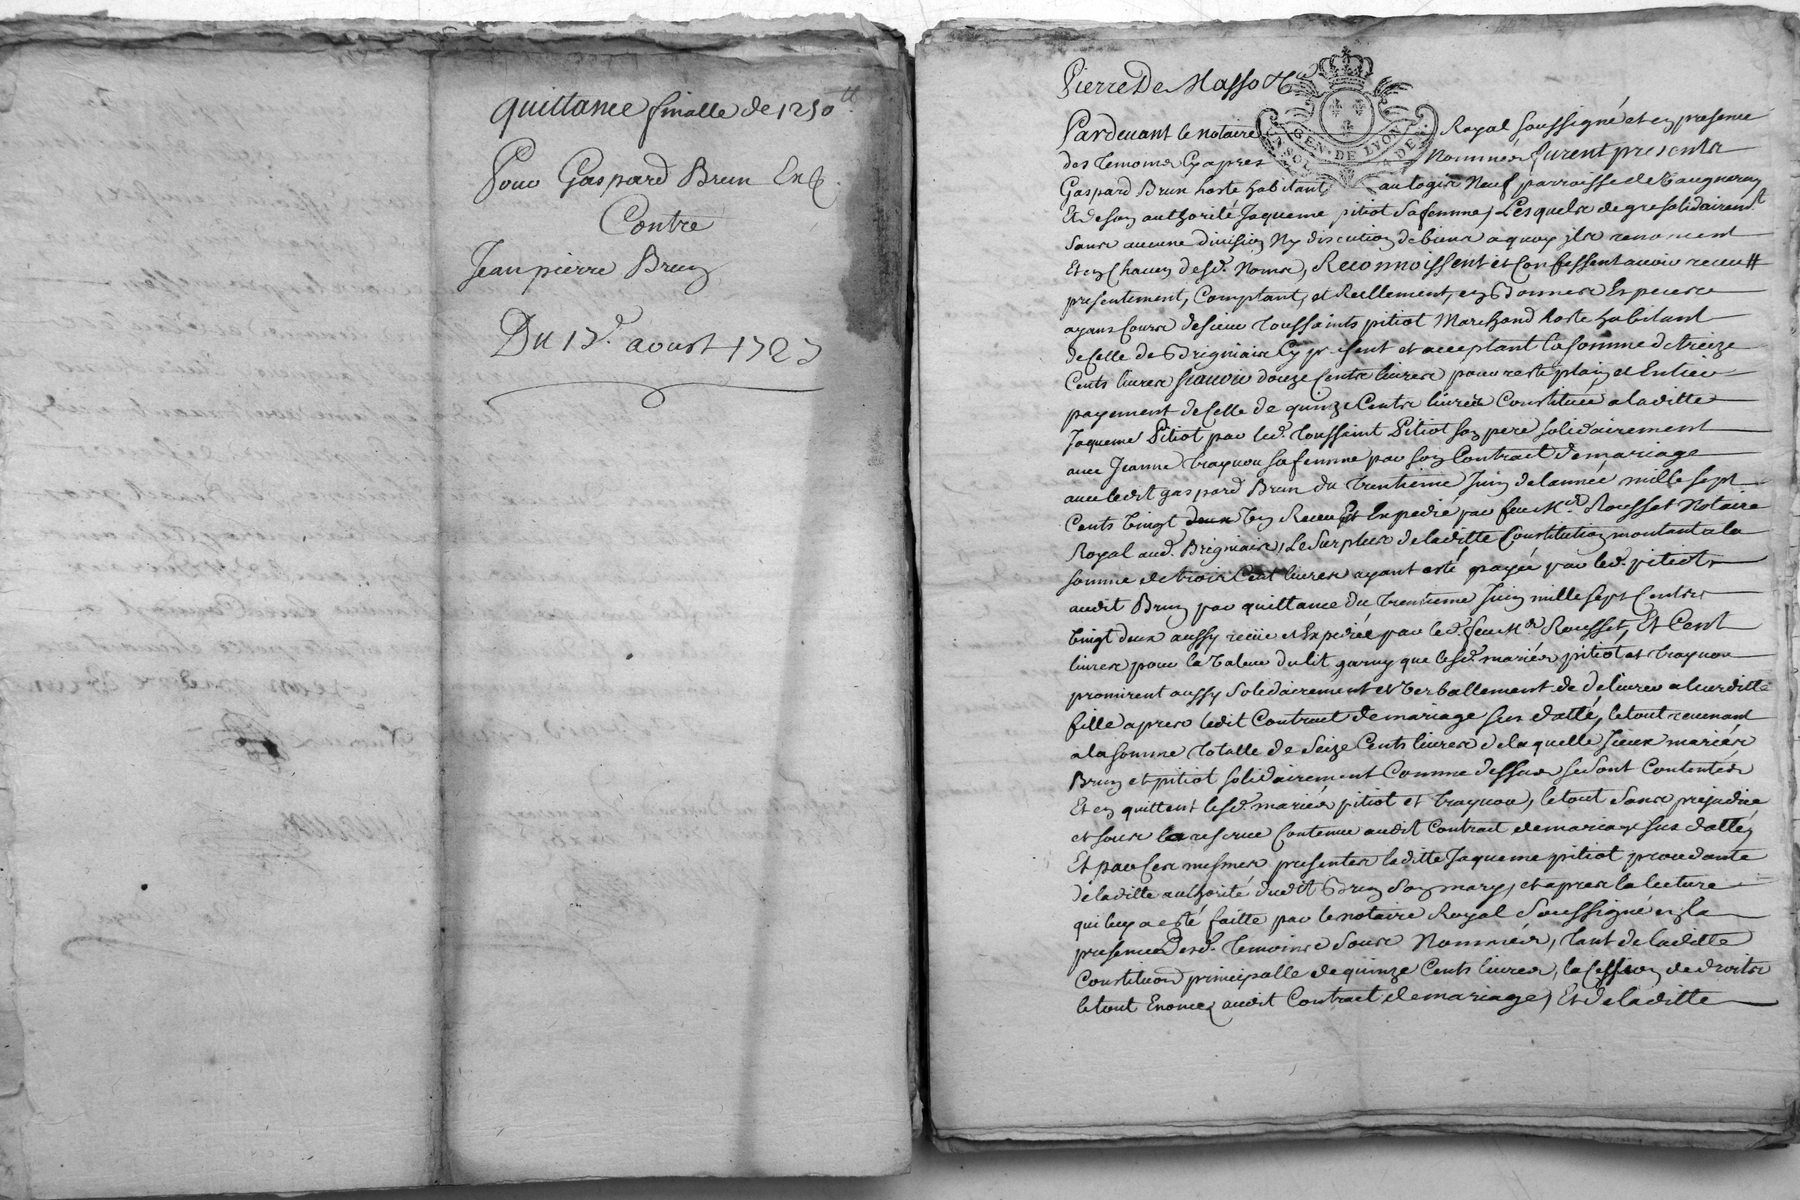 quittance finalle de 1250 tt
Pour Gaspard Brun
Contre
Jean pierre Brun
Du 15e. aoust 1727
Pierre De Masso
GEN. DE LYON
Pardevant le notaire Royal soussigné et en presence
des temoins cy apres Nommés furent presents
Gaspard Brun hoste habitant au logis Neuf parroisse de Vaugneray
Et de son authorité Jaqueme pitiot sa femme, Lesquels de gre solidairemt
sans aucune division Ny discution de biens a quoy ils renoncent
Et en chacun desd. Noms, Reconnoissent et Confessent avoir receu
presentement, Comptant, et Reellement, en bonnes Especes
ayans Cours de sieur toussaints pitiot Marchand hoste habitant
de celle de Brigniais Cy present et acceptant la somme de treize
Cents livres scavoir douze Cents livres pour reste plain et Entier
payement de celle de quinze Cents livres Constituée a laditte
Jaqueme Pitiot par led. toussaint Pitiot son pere solidairement
avec Jeanne traynou sa femme par son Contract de mariage
avec ledit gaspard Brun du trentieme Juin de l'année mille sept
Cents vingt deux Receu Et Expedié par feu Me. Rousset Notaire
Royal aud. Brigniais, Le surplus de laditte Constitution montant a la
somme de trois Cent livres ayant esté payée par led. pitiot
audit Brun par quittance du trentieme Juin mille sept Cents
vingt deux aussy reçüe et Expediée par led. feu Me. Rousset, Et Cent
livres pour la valeur du lit garny que lesd. mariés pitiot et traynou
promirent aussy solidairement et verballement de delivrer a leurditte
fille apres ledit Contract de mariage sus datté, le tout revenant
a la somme totalle de seize Cents livres de laquelle iceux mariés
Brun et pitiot solidairement Comme dessus se sont Contentés
Et en quittent lesd. mariés pitiot et traynou, le tout sans prejudice
et sous la reserve Contenue audit Contract de mariage sus datté,
Et par ces mesmes presentes laditte Jaqueme pitiot procedante
de laditte authorité dudit Brun son mary, et apres la lecture
qui luy a esté faitte par le notaire Royal soussigné en la
presence Desd. temoins sous Nommés, tant de laditte
Constitution principalle de quinze Cents livres, la cession de droits
le tout Enoncé audit Contract de mariage, Et de laditte